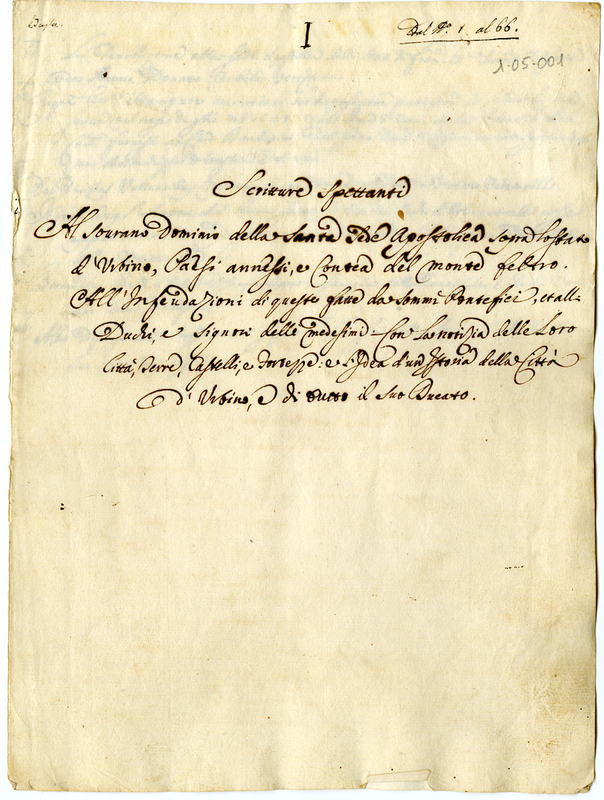 Busta.
I
Dal N.º 1. al 66.
1-05-001
Scritture Spettanti
Al sourano Dominio della Santa Sede Apostolica sopra lo stato
d'Urbino, Paesi annessi, e Contea del monte feltro.
All'Infeudazioni di queste fatte da Sommi Pontefici, et all-
Duchi, e Signori delle medesime = Con la notizia delle Loro
Città, Terre, Castelli, e Fortezze: e l'Idea d'un Istoria della Città
d'Urbino, e di tutto il suo Ducato.